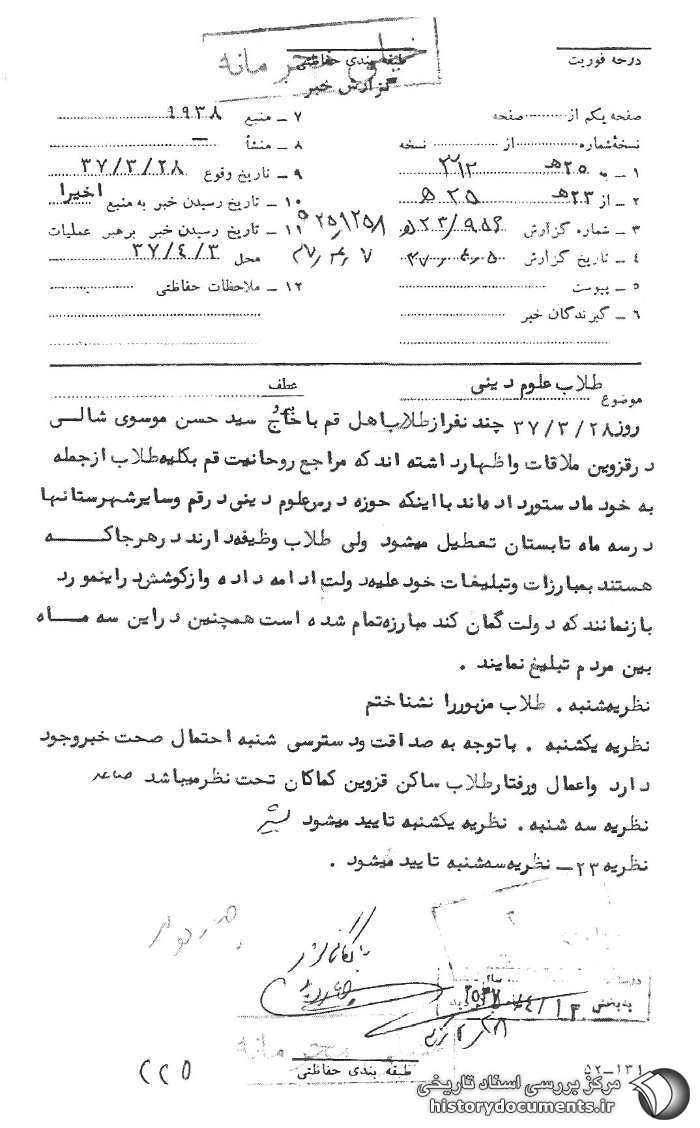 خیلی محرمانه
درجه فوریت
طبقه بندی حفاظتی
گزارش خبر
صفحه یکم از صفحه
نسخه‌شماره از نسخه
۱ ـ به ۲۵هـ ۳۱۲
۲ ـ از ۲۳هـ ۲۵ هـ
۳ ـ شماره گزارش
۴ ـ تاریخ گزارش
۵ ـ پیوست
۶ ـ گیرندگان خبر
۷ ـ منبع ۹۹۳۸
۸ ـ منشأ ـ
۹ ـ تاریخ وقوع ۳۷/۳/۲۸
۱۰ ـ تاریخ رسیدن خبر به منبع اخیرا
۱۱ ـ تاریخ رسیدن خبر برهبر عملیات
محل ۳۷/۴/۳
۱۲ ـ ملاحظات حفاظتی
موضوع طلاب علوم دینی
عطف
روز ۳۷/۳/۲۸ چند نفراز طلاب اهل قم با حاج سید حسن موسوی شالی
در قزوین ملاقات و اظهارداشته اند که مراجع روحانیت قم بکلیه طلاب ازجمله
به خود ما دستورداده‌اند با اینکه حوزه درس علوم دینی درقم وسایرشهرستانها
درسه ماه تابستان تعطیل میشود ولی طلاب وظیفه دارند در هرجا که
هستند بمبارزات وتبلیغات خود علیه دولت ادامه داده و ازکوشش دراینمورد
بازنمانند که دولت گمان کند مبارزه تمام شده است همچنین دراین سه ماه
بین مردم تبلیغ نمایند .
نظریه شنبه . طلاب مزبوررا نشناختم
نظریه یکشنبه . با توجه به صداقت ودسترسی شنبه احتمال صحت خبروجود
دارد واعمال ورفتارطلاب ساکن قزوین کماکان تحت نظرمیباشد
نظریه سه شنبه . نظریه یکشنبه تایید میشود
نظریه ۲۳ـ نظریه سه‌شنبه تایید میشود .
بایگانی شود
طبقه بندی حفاظتی
۵۲-۱۳۱
مرکز بررسی اسناد تاریخی
historydocuments.ir